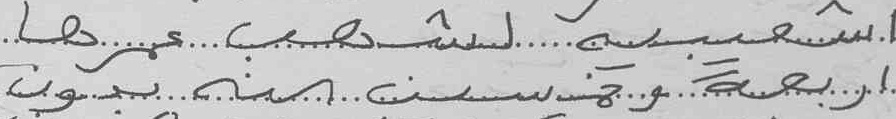 الشعبيه لشعب عمرها
اربعة وخمسين سنه بدون